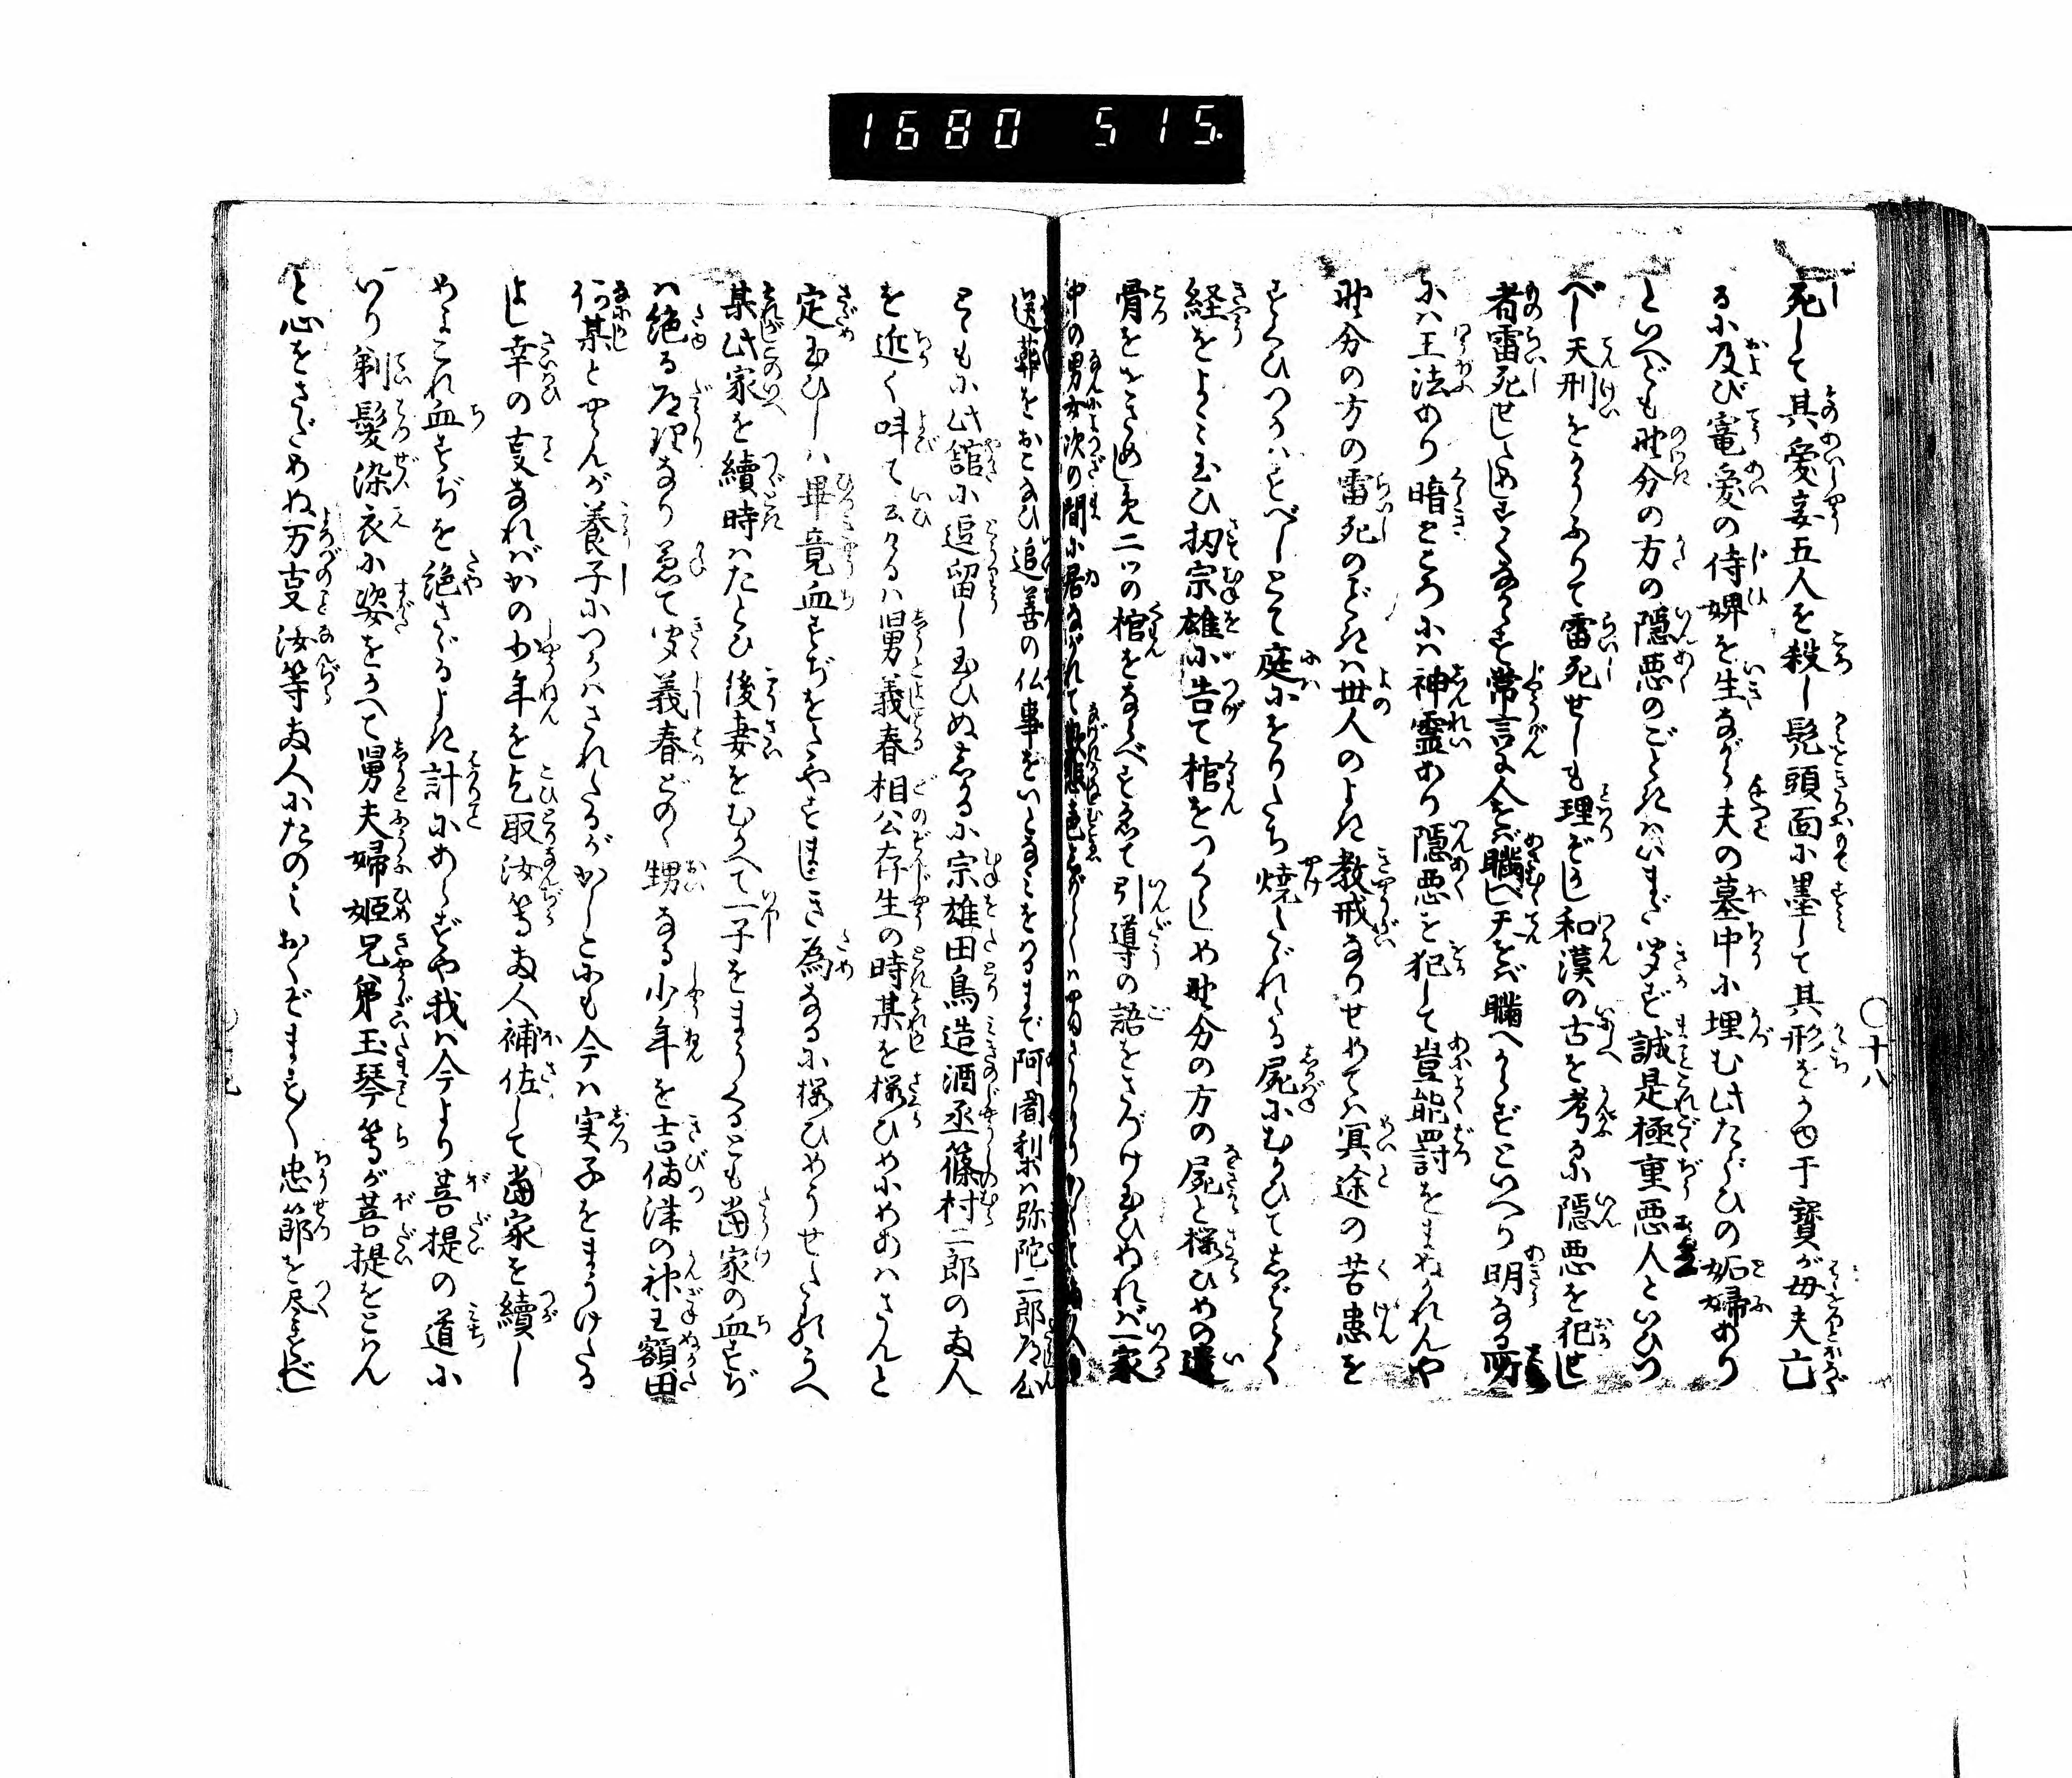 1680 515.
〇十八
死して其愛妾五人を殺し髡頭面に墨して其形をかゆ于寶が母夫亡
るに及び寵愛の侍婢を生ながら夫の墓中に埋む此たぐひの妬婦あり
といへども野分の方の隠悪のごときはいまだ聞ず誠是極重悪人といひつ
べし天刑をかうふりて雷死せしも理ぞかし和漢の古を考るに隠悪を犯せし
者雷死せしためしすくなからず常言に人をば瞞べし天をば瞞べからずといへり明なる所
には王法あり暗ところには神霊あり隠悪を犯して豈能罸をまぬかれんや
野分の方の雷死のごときは世人のよき教戒なりせめては冥途の苦患を
すくひつかはすべしとて庭にをりたち焼たゞれたる屍にむかひてしばらく
経をよみ玉ひ扨宗雄に告て棺をつくらしめ野分の方の屍と桜ひめの遺
骨ををさめしめ二ツの棺をならべすゑて引導の語をさづけ玉ひぬれば一家
中の男女次の間に居ながれて
送葬をおこなひ追善の仏事をいとなみをはるまで阿闍梨は弥陀二郎道心
ともに此舘に追留し玉ひぬしかるに宗雄田鳥造酒丞篠村二郎の両人
を近く呼て云けるは舅義春相公存生の時某を桜ひめにめあはさんと
定玉ひしは畢竟血すぢをたやすまじき為なるに桜ひめうせたるうへ
某此家を續時はたとひ後妻をむかへて一子をまうくるとも當家の血すぢ
は絶る道理なり兼て聞義春どのゝ甥なる少年を吉備津の神主額田
何某とやらんが養子につかはされたるがかしこにも今は実子をまうけたる
よし幸の支なればかの少年を乞取汝等両人補佐して當家を續し
めよこれ血すぢを絶さゞるよき計にあらずや我は今より菩提の道に
いり剃髪染衣に姿をかへて舅夫婦姫兄弟玉琴等が菩提をとはん
と心をさだめぬ万支汝等両人にたのみおくぞまさしく忠節を尽すべし